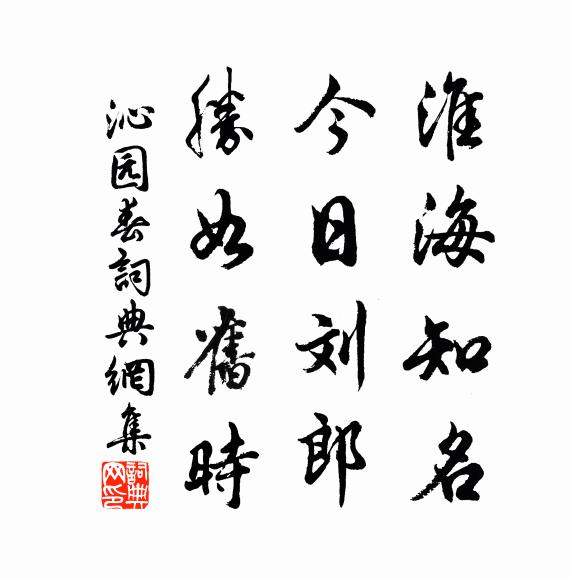 淮海知名
今日刘郎
勝如舊時
沁园春詞典網集
詞典网印